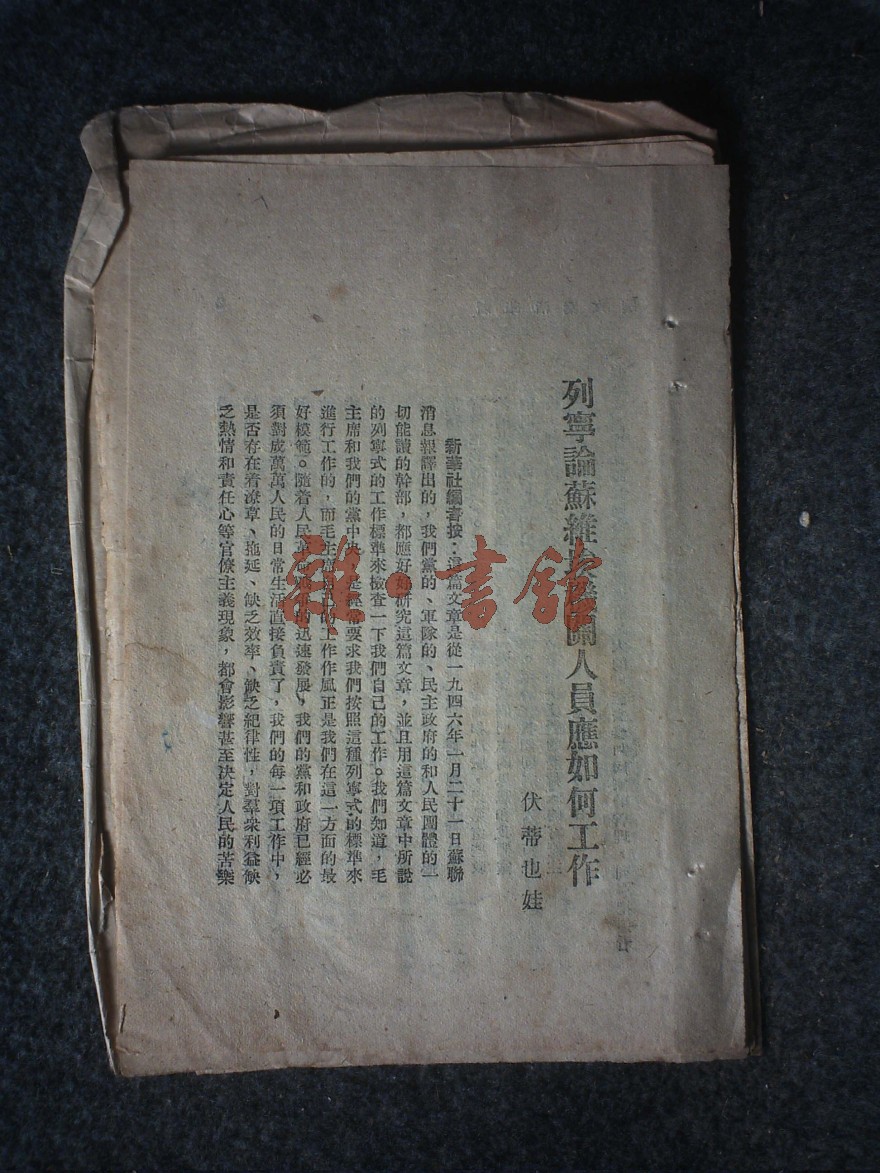 列寧論蘇維埃機關人員應如何工作
伏蒂也娃
新華社編者按：這篇文章是從一九四六年一月二十一日蘇聯
消息報譯出的，我們黨的、軍隊的、民主政府的和人民團體的一
切能讀的幹部，都應好好研究這篇文章，並且用這篇文章中所說
的列寧式的工作標準來檢查一下我們自己的工作。我們知道，毛
主席和我們的黨中央，是經常要求我們按照這種列寧式的標準來
進行工作的，而毛主席自己的工作作風正是我們在這一方面的最
好模範。隨着人民革命的迅速發展，我們的黨和政府已經必
須對成萬萬人民的日常生活直接負責了，我們的每一項工作中，
是否存在着潦草、拖延、缺乏效率、缺乏紀律性，對羣衆利益缺
乏熱情和責任心等官僚主義現象，都會影響甚至決定人民的苦樂
雜·書館